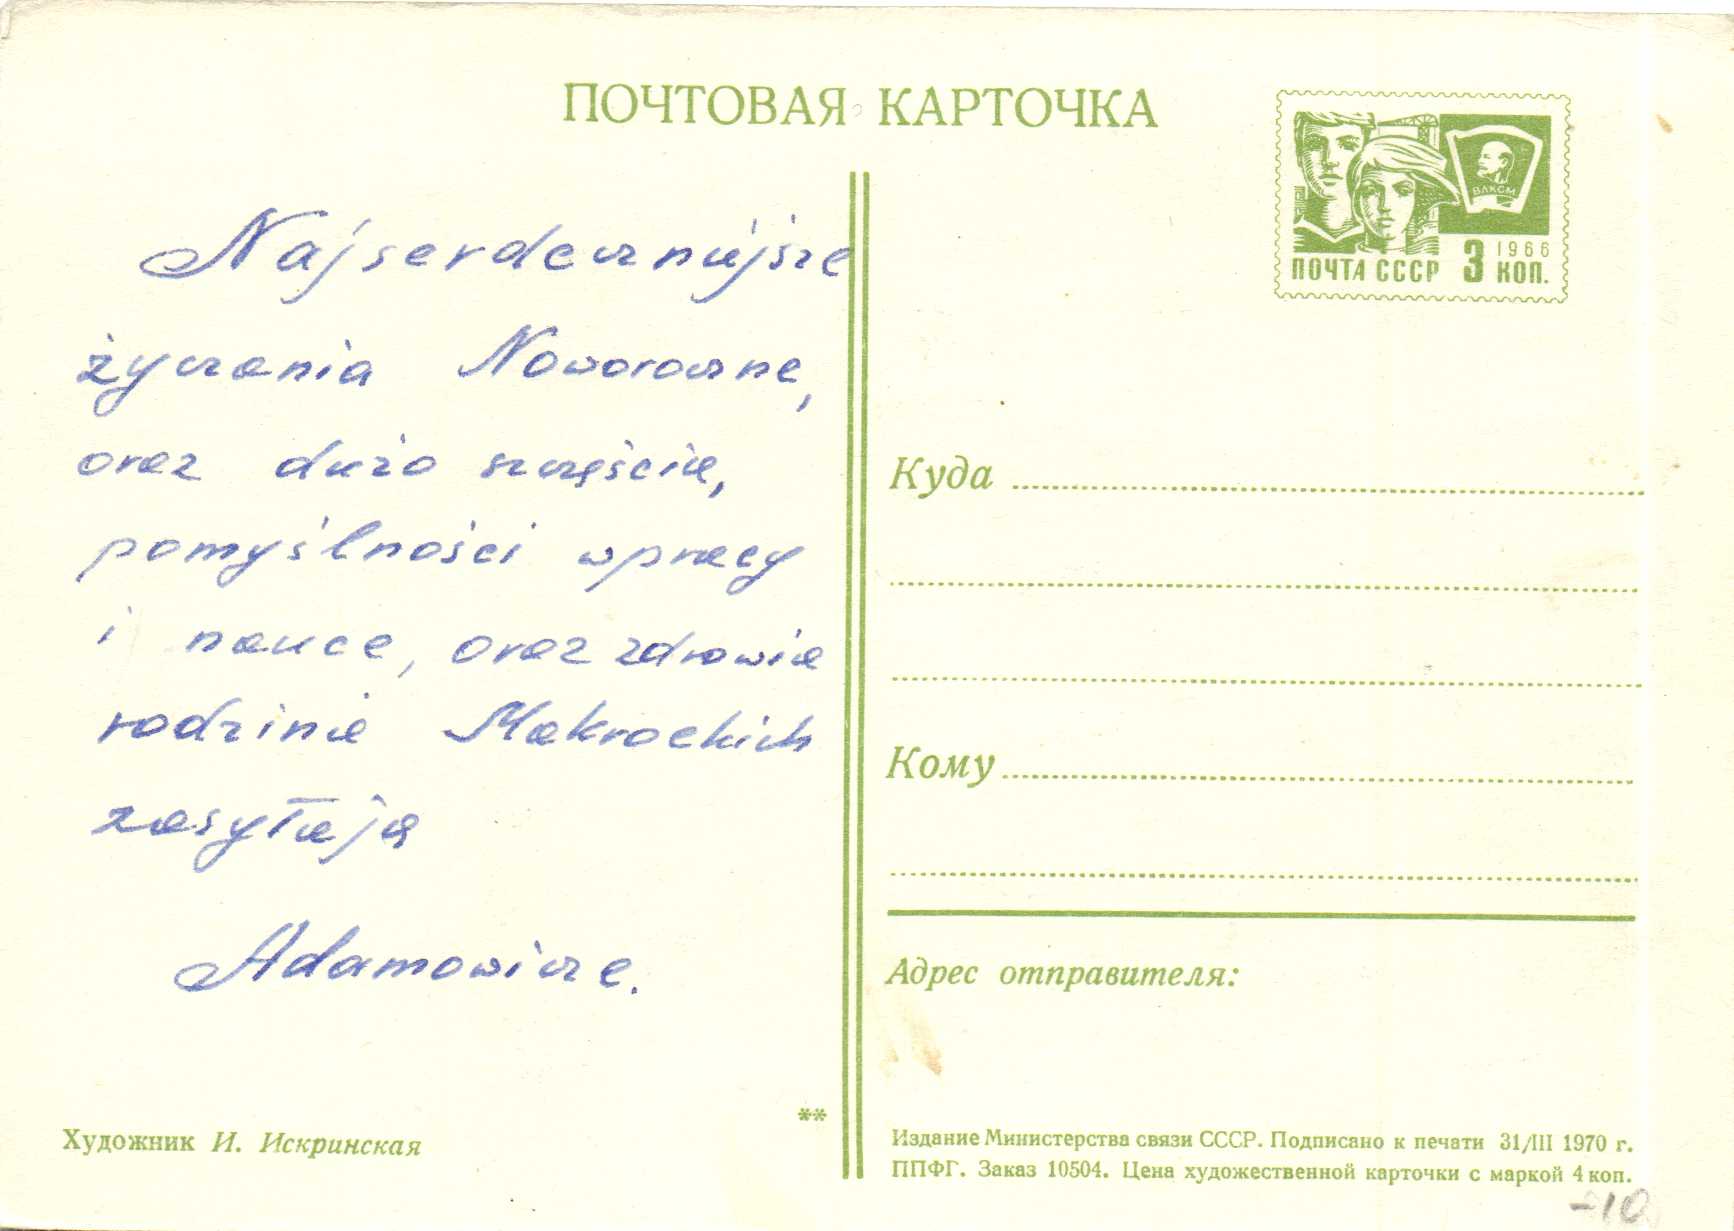 ПОЧТОВАЯ КАРТОЧКА
ВЛКСМ
1966
ПОЧТА СССР 3 КОП.
Najserdeczniejsze
życzenia Noworoczne,
oraz dużo szczęścia,
pomyślności w pracy
i nauce, oraz zdrowia
rodzinie Makrockich
zasyłają
Adamowicze.
Куда
Кому
Адрес отправителя:
**
Художник И. Искринская
Издание Министерства связи СССР. Подписано к печати 31/III 1970 г.
ППФГ. Заказ 10504. Цена художественной карточки с маркой 4 коп.
-10